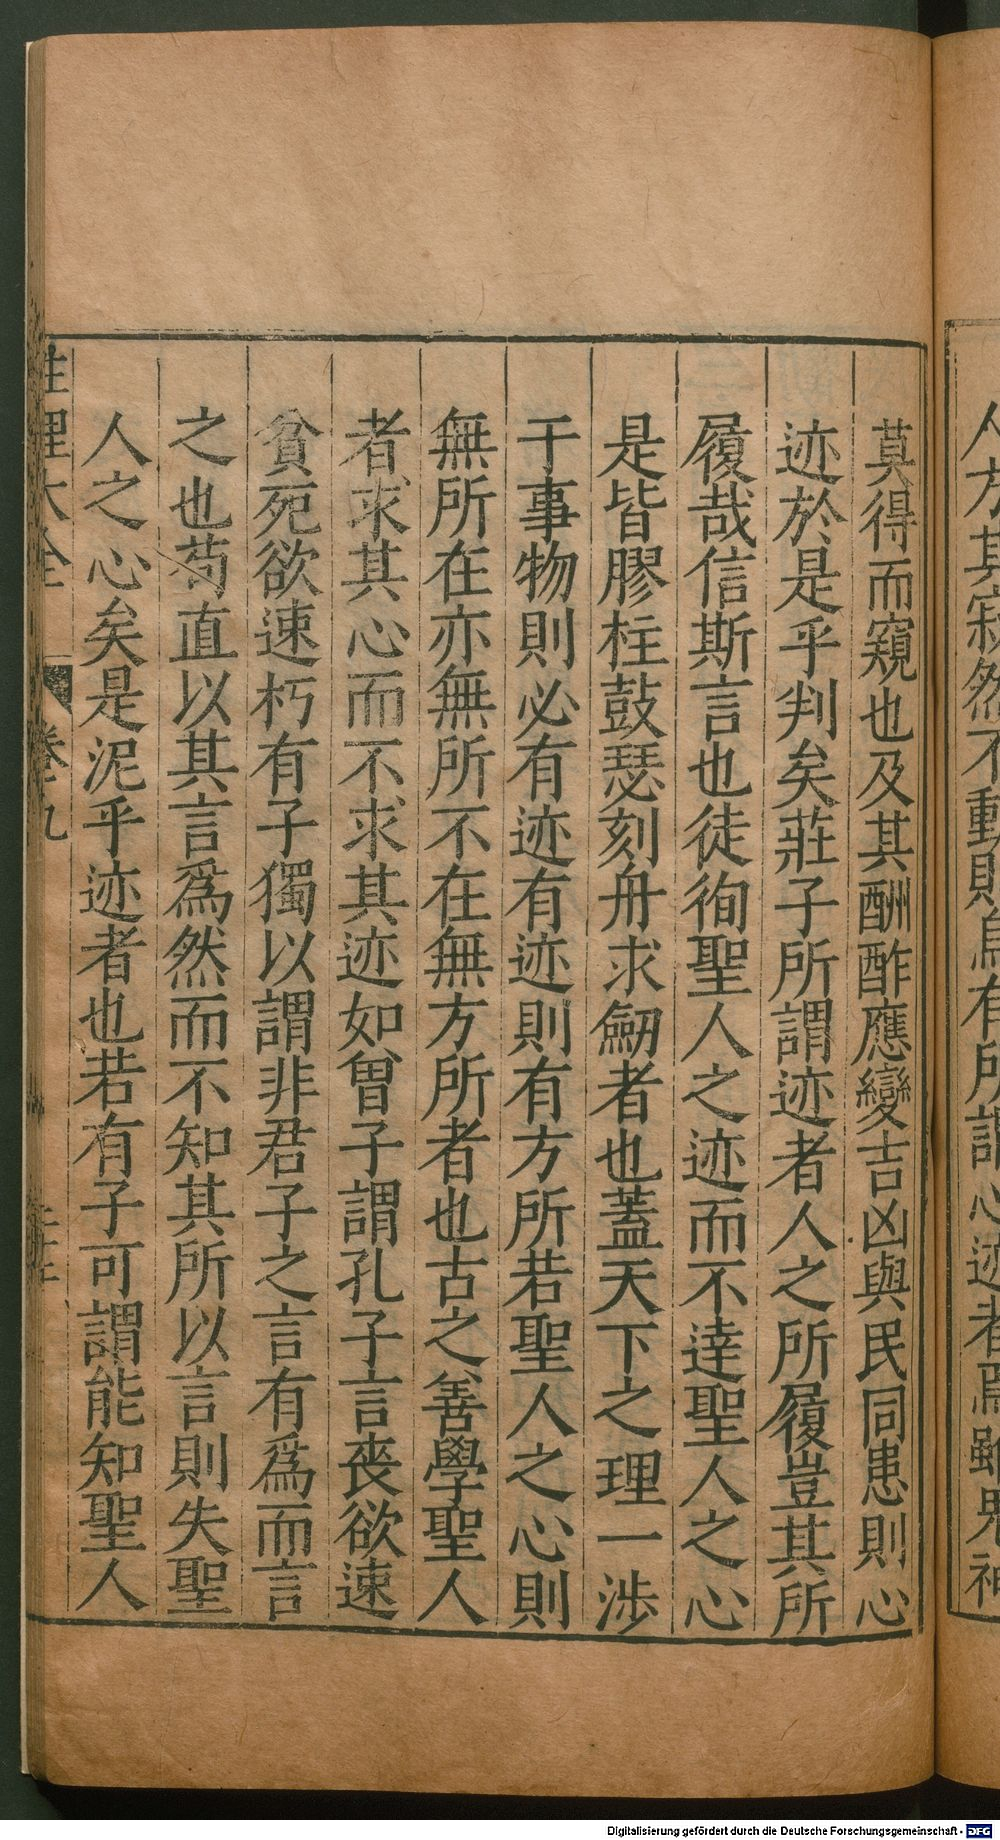 人方其寂然不動則烏有所謂心迹者焉雖鬼神
莫得而窺也及其酬酢應變吉凶與民同患則心
迹於是乎判矣莊子所謂迹者人之所履豈其所
履哉信斯言也徒徇聖人之迹而不達聖人之心
是皆膠柱鼓瑟刻舟求劔者也蓋天下之理一涉
干事物則必有迹有迹則有方所若聖人之心則
無所在亦無所不在無方所者也古之善學聖人
者求其心而不求其迹如曾子謂孔子言喪欲速
貧死欲速朽有子獨以謂非君子之言有爲而言
之也苟直以其言爲然而不知其所以言則失聖
人之心矣是泥乎迹者也若有子可謂能知聖人
性理大全 卷九
Digitalisierung gefördert durch die Deutsche Forschungsgemeinschaft - DFG